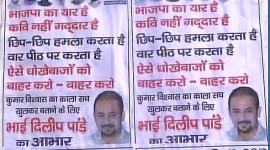 भाजपा का यार है
कवि नहीं गद्दार है
छिप-छिप हमला करता है
वार पीठ पर करता है
ऐसे धोखेबाजों को
बाहर करो - बाहर करो
कुमार विश्वास का काला सच
खुलकर बताने के लिए
भाई दिलीप पांडे
का आभार
भाजपा का यार है
कवि नहीं गद्दार है
छिप-छिप हमला करता है
वार पीठ पर करता है
ऐसे धोखेबाजों को
बाहर करो - बाहर करो
कुमार विश्वास का काला सच
खुलकर बताने के लिए
भाई दिलीप पांडे
का आभार